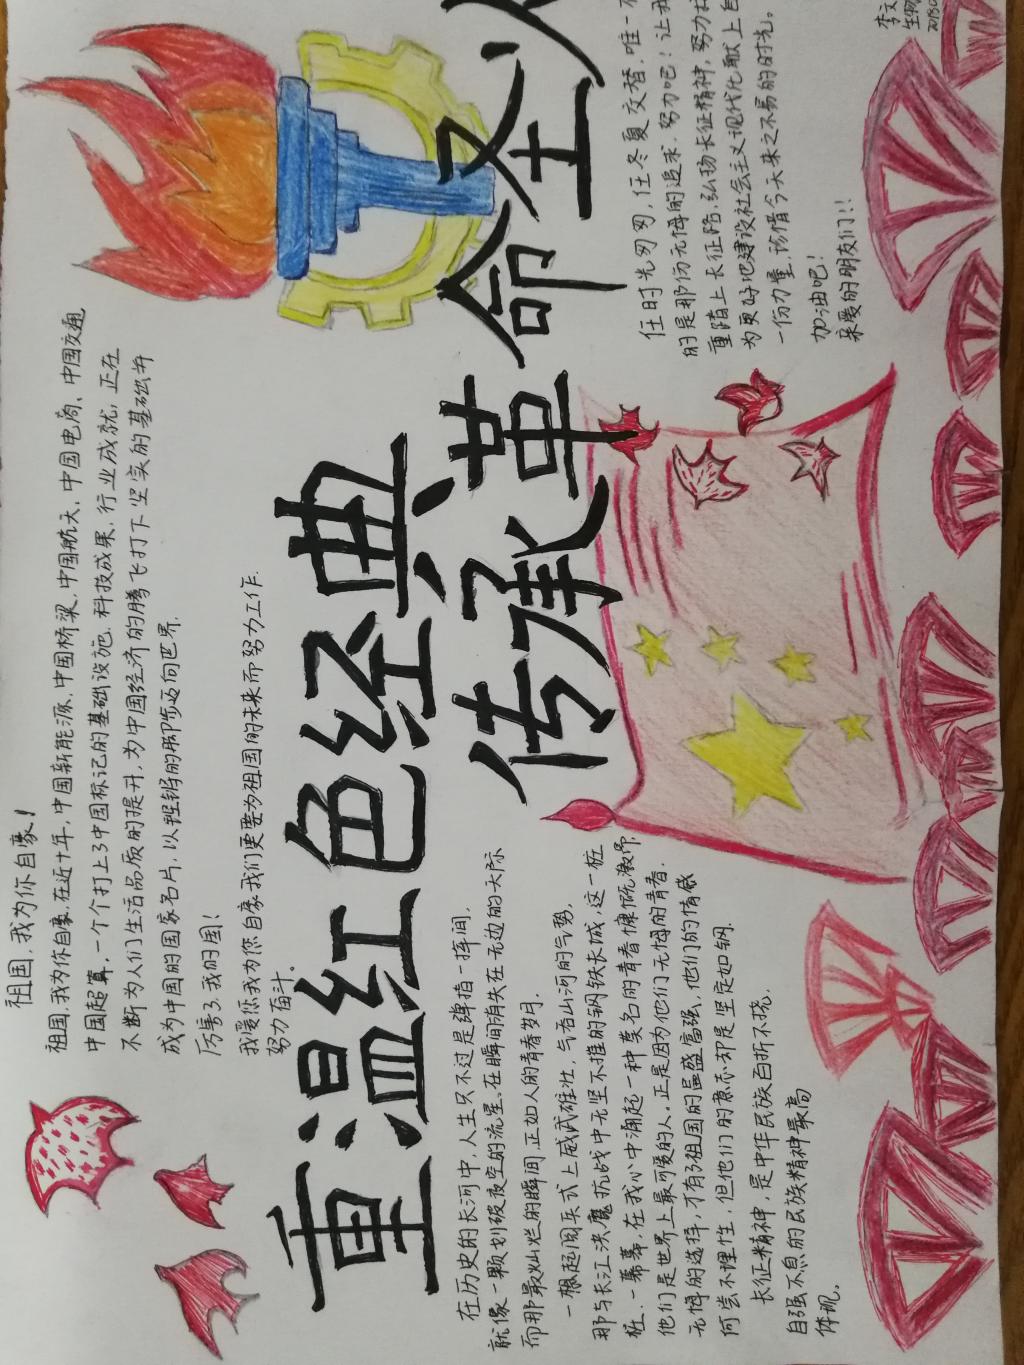 祖国，我为你自豪！
祖国，我为你自豪，在近十年，中国新能源、中国桥梁、中国航天、中国电商、中国交通
中国超算，一个个打上了中国标记的基础设施、科技成果、行业成就，正在
不断为人们生活品质的提升，为中国经济的腾飞打下坚实的基础并
成为中国的国家名片，以铿锵的脚步迈向世界。
厉害了，我的国！
我爱您我为您自豪，我们更要为祖国的未来而努力工作，
努力奋斗。
重温红色经典
传承革命圣人
在历史的长河中，人生只不过是弹指一挥间，
就像一颗划破夜空的流星，在瞬间消失在无边的天际
而那最灿烂的瞬间，正如人的青春岁月。
一想起阅兵式上威武雄壮，气吞山河的气势，
那与长江决魔抗战中无坚不摧的钢铁长城，这一桩
桩、一幕幕，在我心中涌起一种莫名的青春慷慨激昂，
他们是世界上最可爱的人，正是因为他们无悔的青春
无悔的选择，才有了祖国的昌盛富强，他们的情感
何尝不理性，但他们的意志却是坚定如钢。
长征精神，是中华民族百折不挠，
自强不息的民族精神最高
体现。
任时光匆匆，任冬夏交替，唯一不
的是那份无悔的追求，努力吧！让我
重踏上长征路，弘扬长征精神，努力
为更好地建设社会主义现代化献上自
一份力量，珍惜今天来之不易的时光。
加油吧！
亲爱的朋友们！！
李文
生物